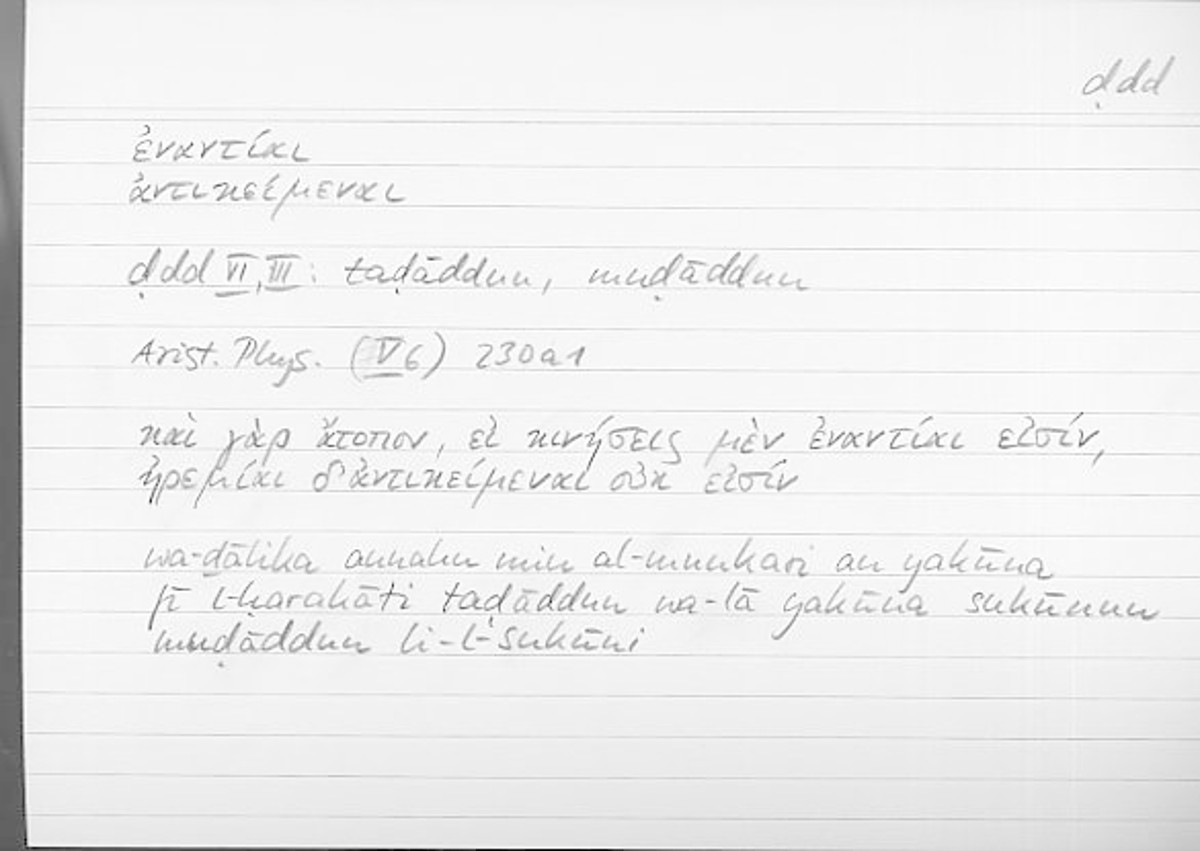 ḍdd
ἐναντίαι
ἀντικείμεναι
ḍdd VI, III: taḍāddun, muḍāddun
Arist. Phys. (V 6) 230a1
καὶ γὰρ ἄτοπον, εἰ κινήσεις μὲν ἐναντίαι εἰσίν,
ἠρεμίαι δ' ἀντικείμεναι οὐκ εἰσίν
wa-ḏālika annahu min al-munkari an yakūna
fī l-ḥarakāti taḍāddun wa-lā yakūna sukūnun
muḍāddun li-l-sukūni